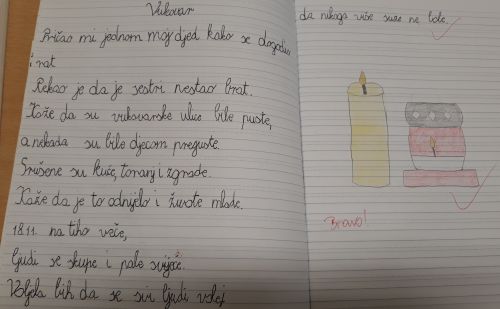 Vukovar
Pričao mi jednom moj djed kako se dogodio
i rat
Rekao je da je sestri nestao brat.
Kaže da su vukovarske ulice bile puste,
a nekada su bile djecom preguste.
Srušene su kuće, toranj i zgrade.
Kaže da je to odnijelo i živote mlade.
18.11. na tiho veče,
ljudi se skupe i pale svijeće.
Voljela bih da se svi ljudi vole,
da nikoga više suze ne bole.
Bravo!